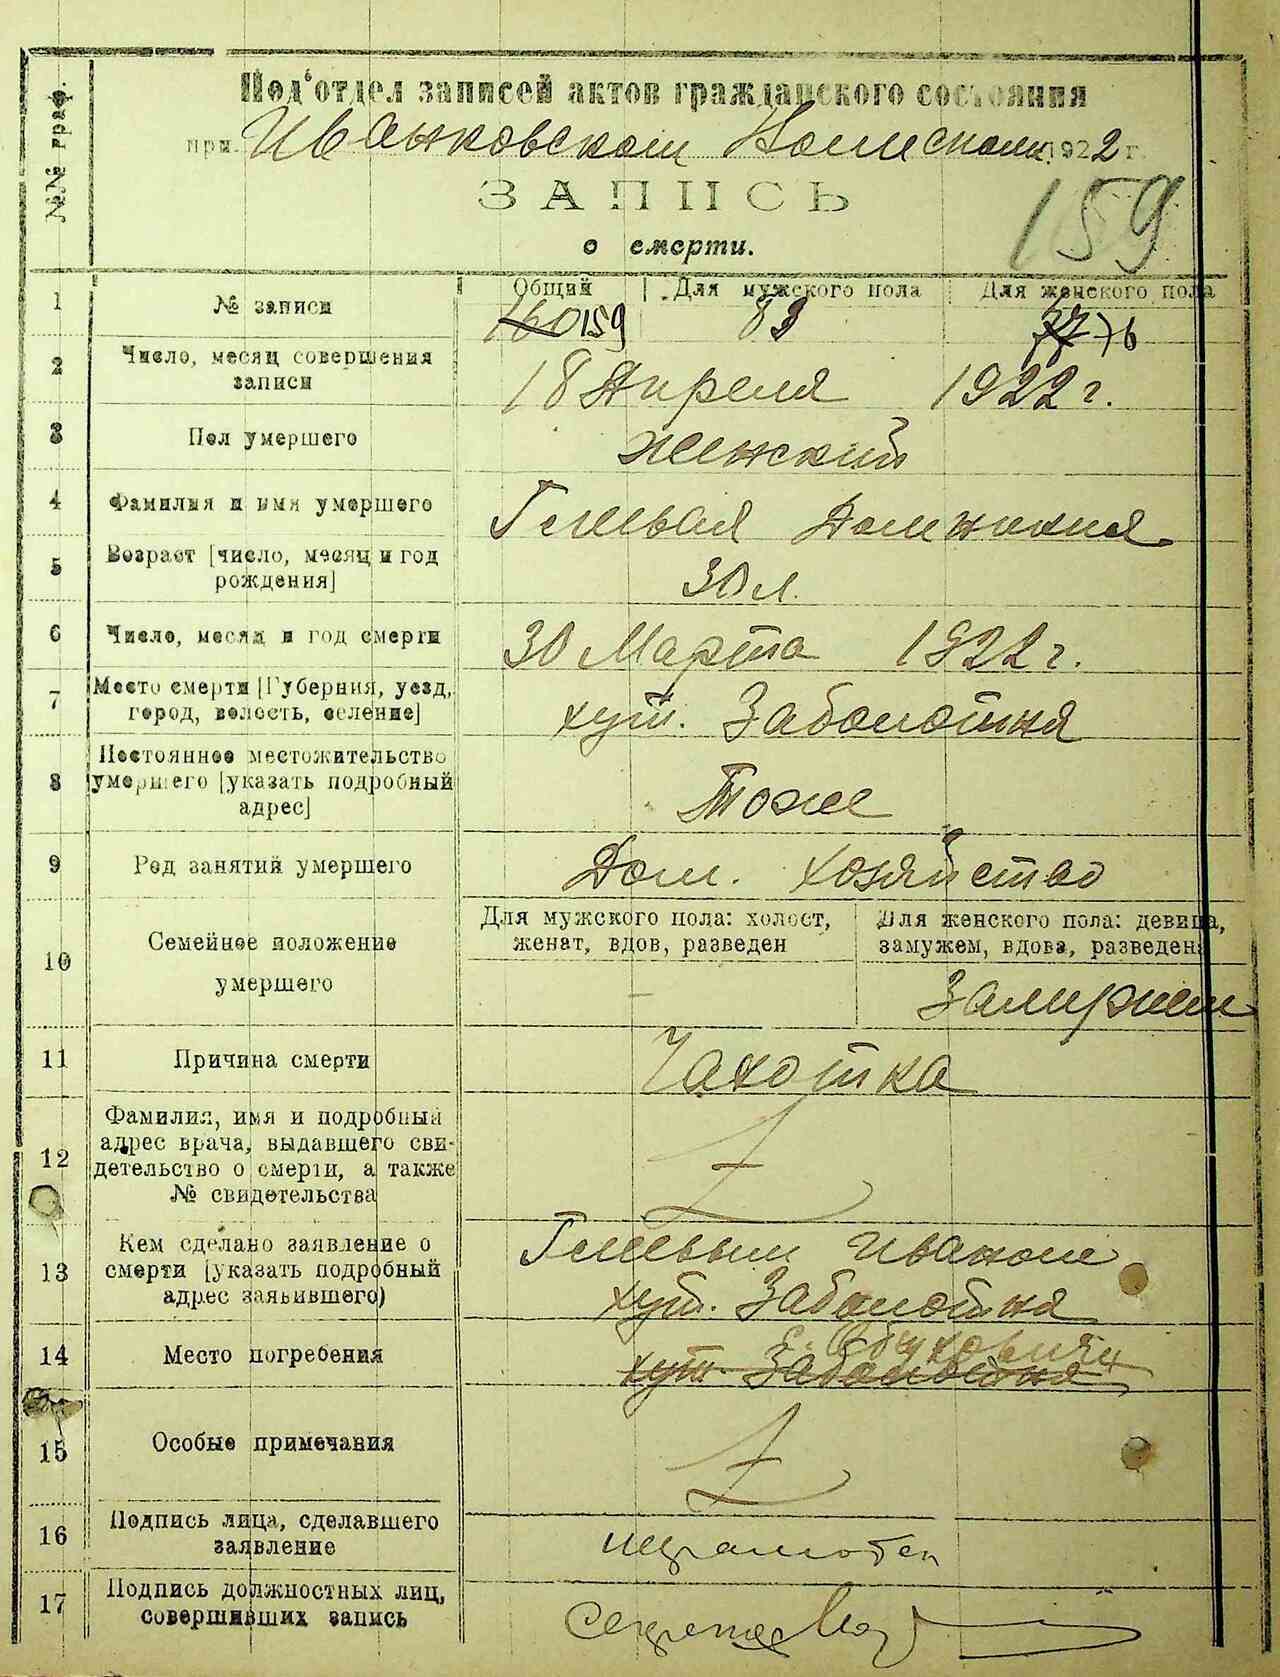 №№ граф.
Под'отдел записей актов гражданского состояния
при Иванковском Волисполк. 1922 г.
ЗАПИСЬ
о смерти.
159
1 № записи Общий Для мужского пола Для женского пола
160 159 83 77 76
2 Число, месяц совершения
записи 18 Апреля 1922 г.
3 Пол умершего женский
4 Фамилия и имя умершего Гелевая Домникия
5 Возраст [число, месяц и год
рождения] 30 л.
6 Число, месяц и год смерти 30 Марта 1922 г.
7 Место смерти [Губерния, уезд,
город, волость, селение] хут. Заболотня
8 Постоянное местожительство
умершего [указать подробный
адрес] Тоже
9 Род занятий умершего Дом. хозяйство
10 Семейное положение
умершего
Для мужского пола: холост,
женат, вдов, разведен
–
Для женского пола: девица,
замужем, вдова, разведена
Замужем
11 Причина смерти Чахотка
12 Фамилия, имя и подробный
адрес врача, выдавшего сви-
детельство о смерти, а также
№ свидетельства
13 Кем сделано заявление о
смерти [указать подробный
адрес заявившего)
Гелевым Иваном
хут. Заболотня
14 Место погребения с. Обуховичи
хут. Заболотня
15 Особые примечания
16 Подпись лица, сделавшего
заявление неграмотен
17 Подпись должностных лиц,
совершивших запись Секретарь